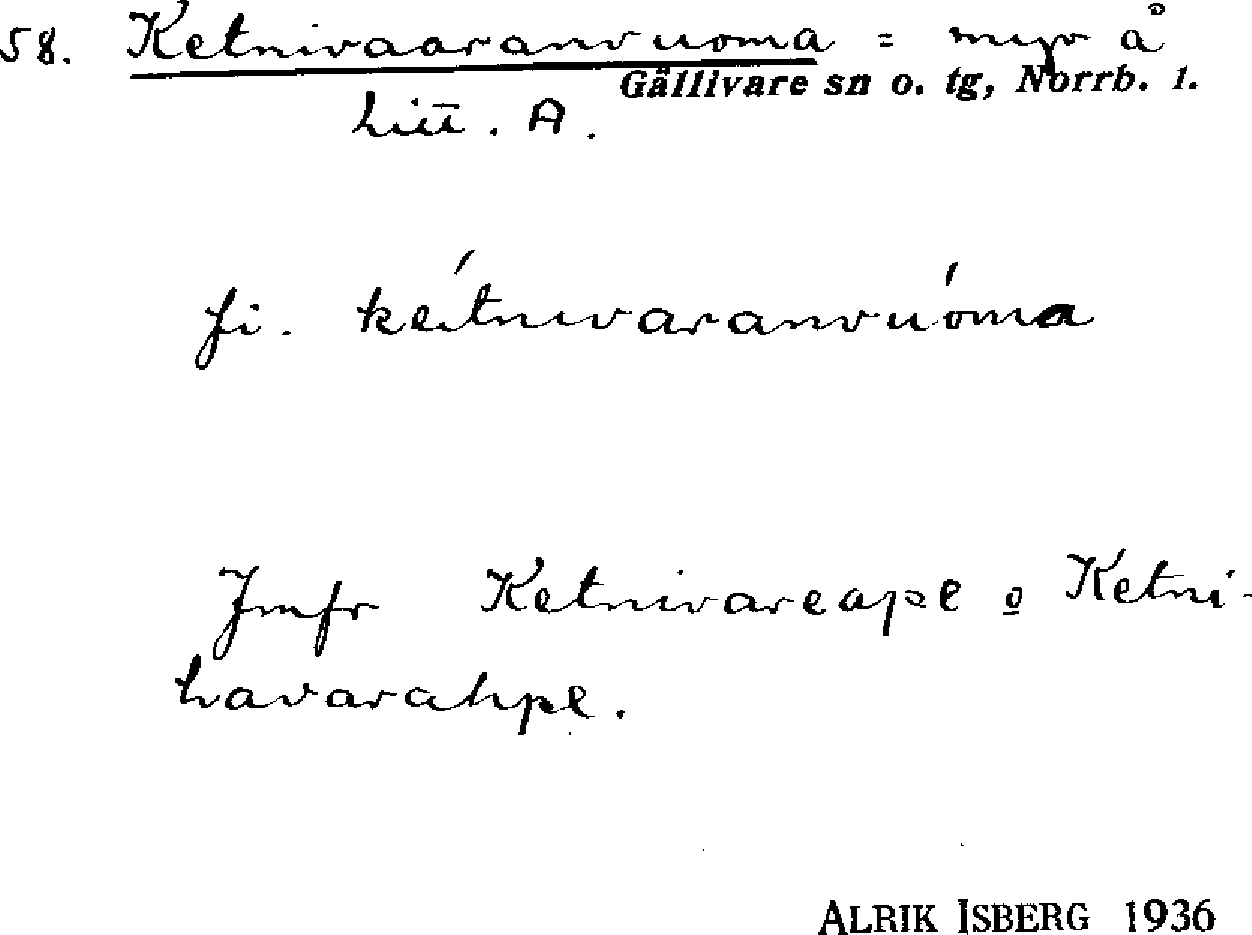 58. Ketnivaaranvuoma = myr å
Gällivare sn o. tg, Norrb. l.
Litt. A.
fi. kéitnivaranvúoma
Jmfr Ketnivareape o Ketni-
havarahpe.
ALRIK ISBERG 1936